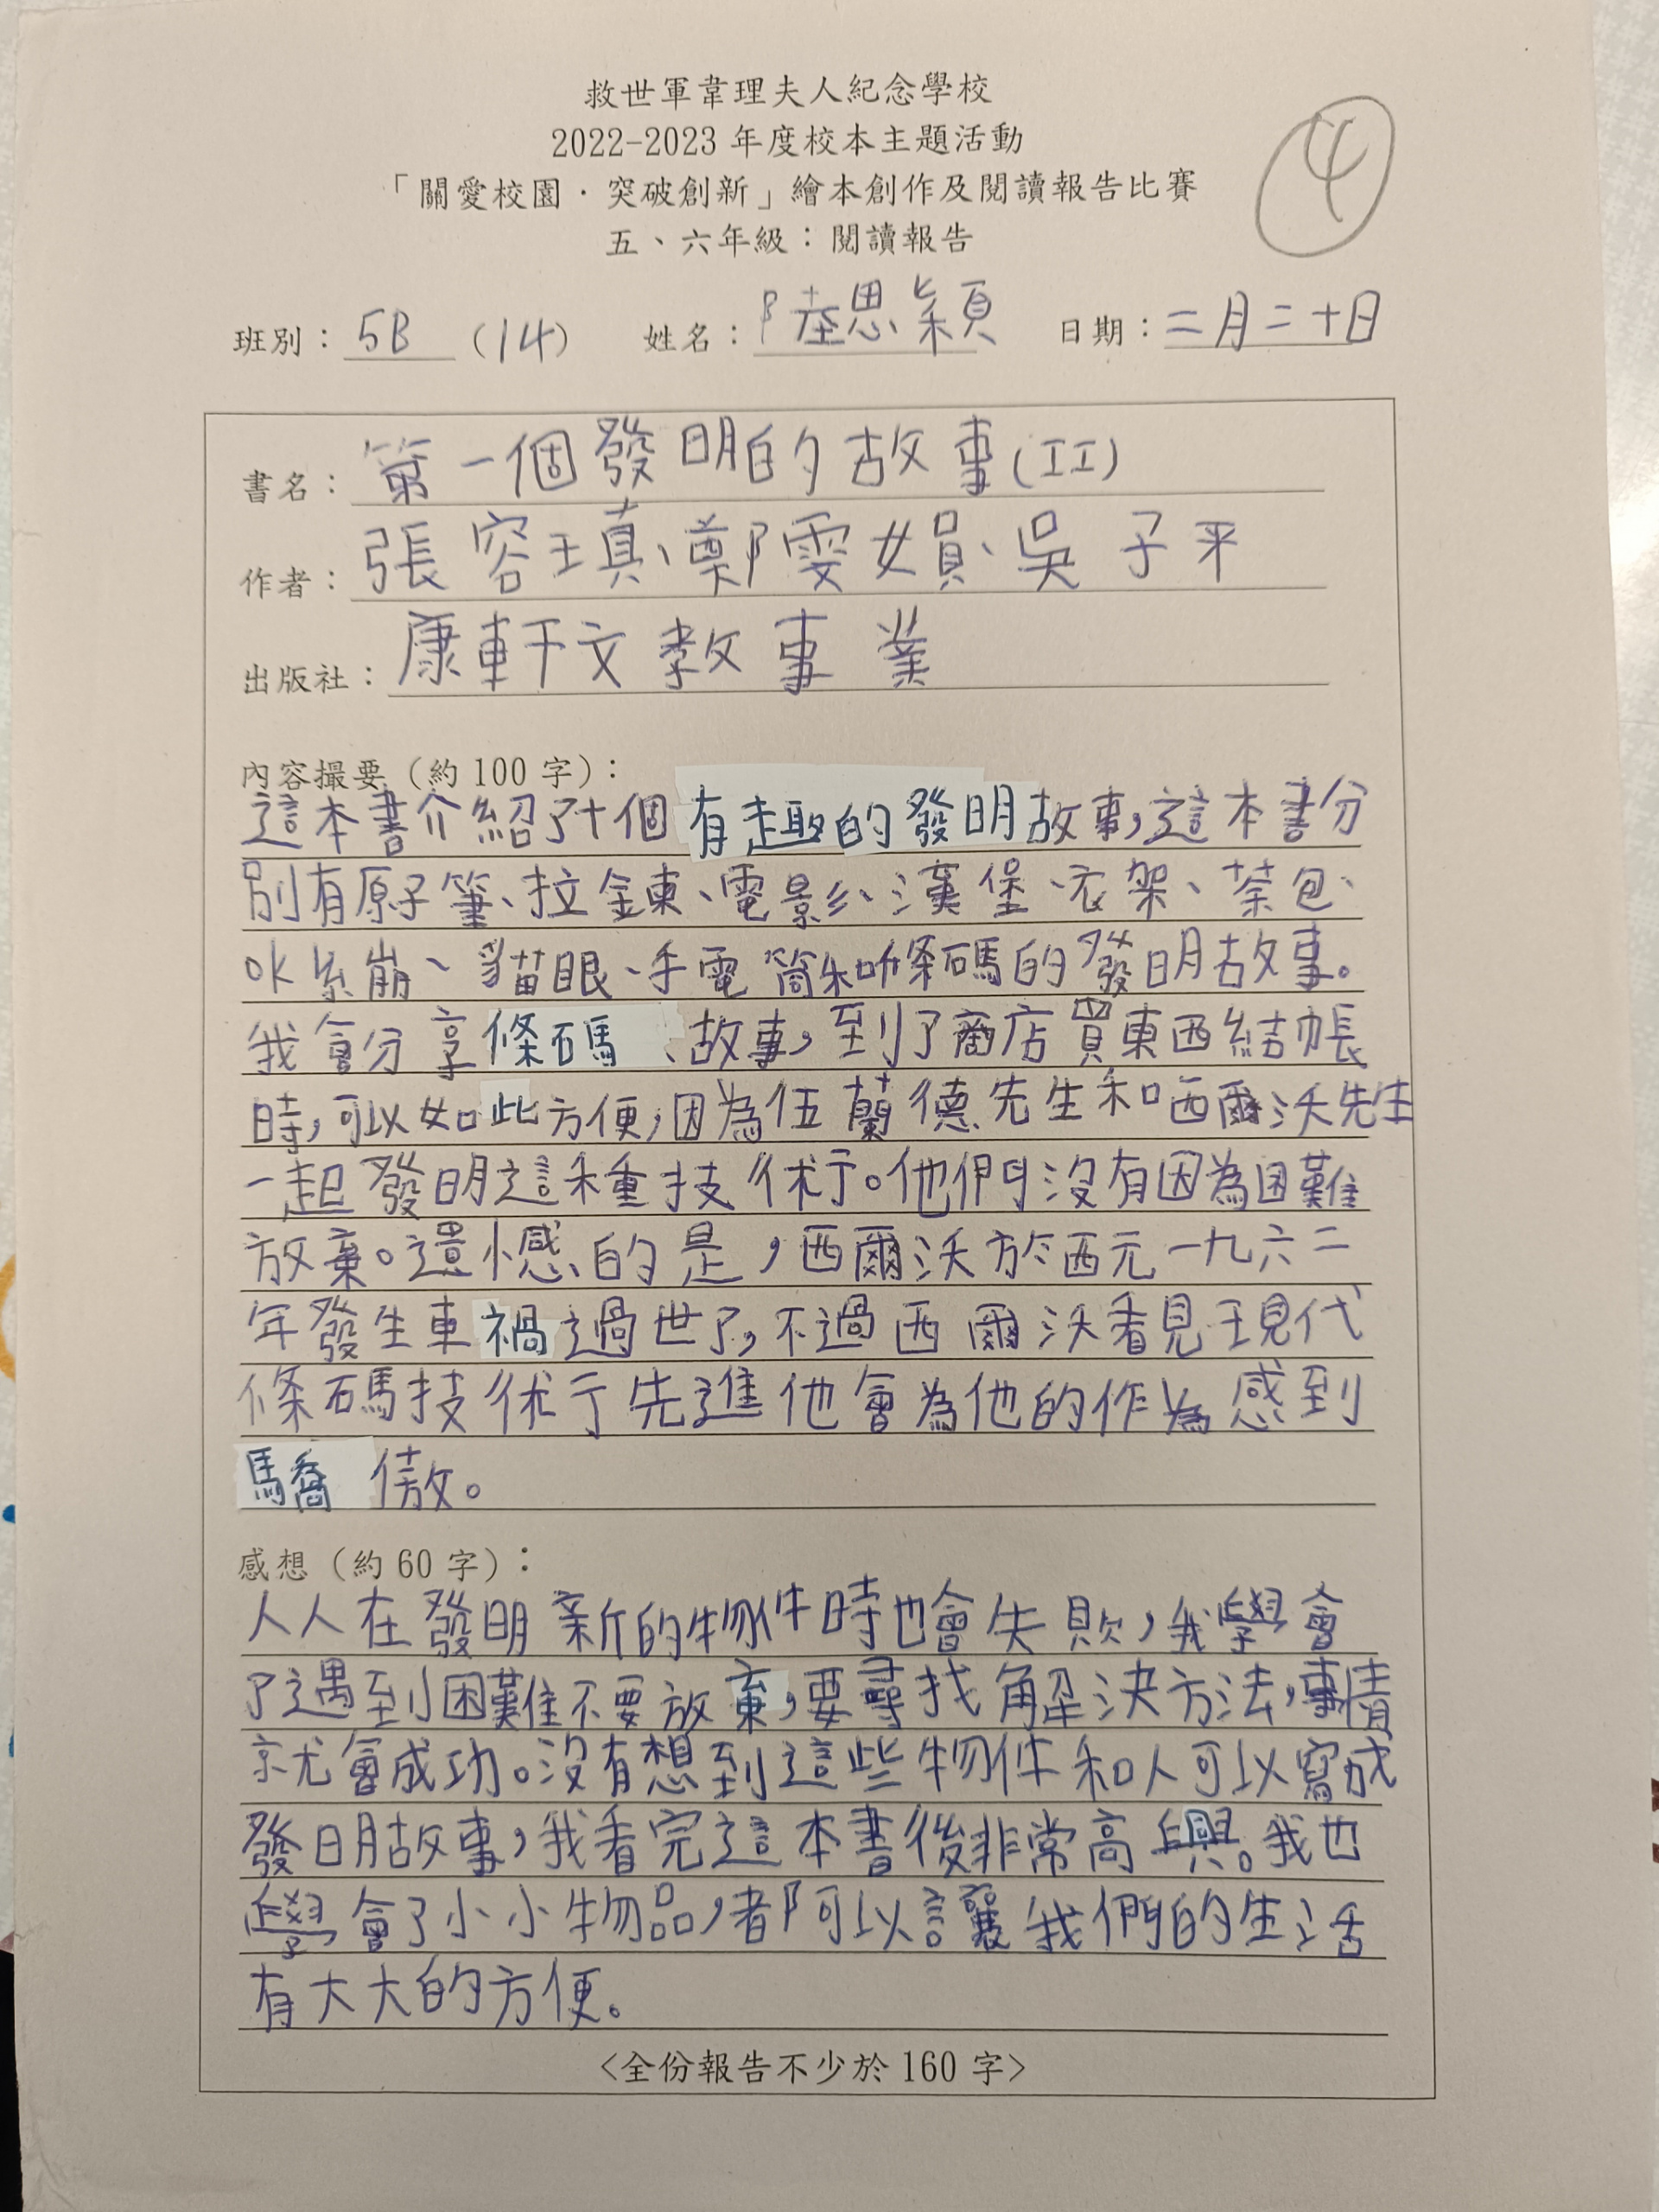 救世軍韋理夫人紀念學校
2022-2023 年度校本主題活動
「關愛校園．突破創新」繪本創作及閱讀報告比賽
五、六年級：閱讀報告
④
班別：5B (14) 姓名：陸思穎 日期：二月二十日
書名：第一個發明的故事(II)
作者：張容瑱、鄭雯娟、吳子平
出版社：康軒文教事業
內容撮要（約 100 字）：
這本書介紹了十個有趣的發明故事，這本書分
別有原子筆、拉鍊、電影、漢堡、衣架、茶包、
OK繃、貓眼、手電筒和條碼的發明故事。
我會分享條碼、故事，到了商店買東西結帳
時，可以如此方便，因為伍蘭德先生和西爾沃先生
一起發明這種技術。他們沒有因為困難
放棄。遺憾的是，西爾沃於西元一九六二
年發生車禍過世了，不過西爾沃看見現代
條碼技術先進他會為他的作為感到
驕傲。
感想（約 60 字）：
人人在發明新的物件時也會失敗，我學會
了遇到困難不要放棄，要尋找解決方法，事情
就會成功。沒有想到這些物件和人可以寫成
發明故事，我看完這本書後非常高興。我也
學會了小小物品，都可以讓我們的生活
有大大的方便。
<全份報告不少於 160 字>